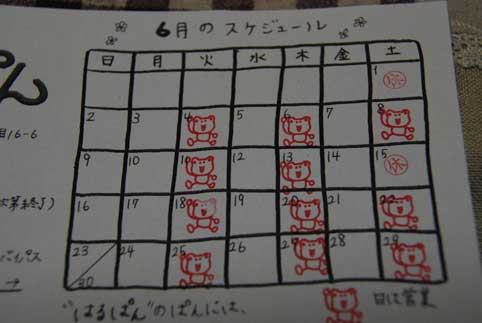 6月のスケジュール
日 月 火 水 木 金 土
1 休
2 3 4 5 6 7 8
9 10 11 12 13 14 15 休
16 17 18 19 20 21 22
23 24 25 26 27 28 29
30
ぱん
目16-6
第終了)
バイパス
→
"はるぱん"のぱんには、
日は営業